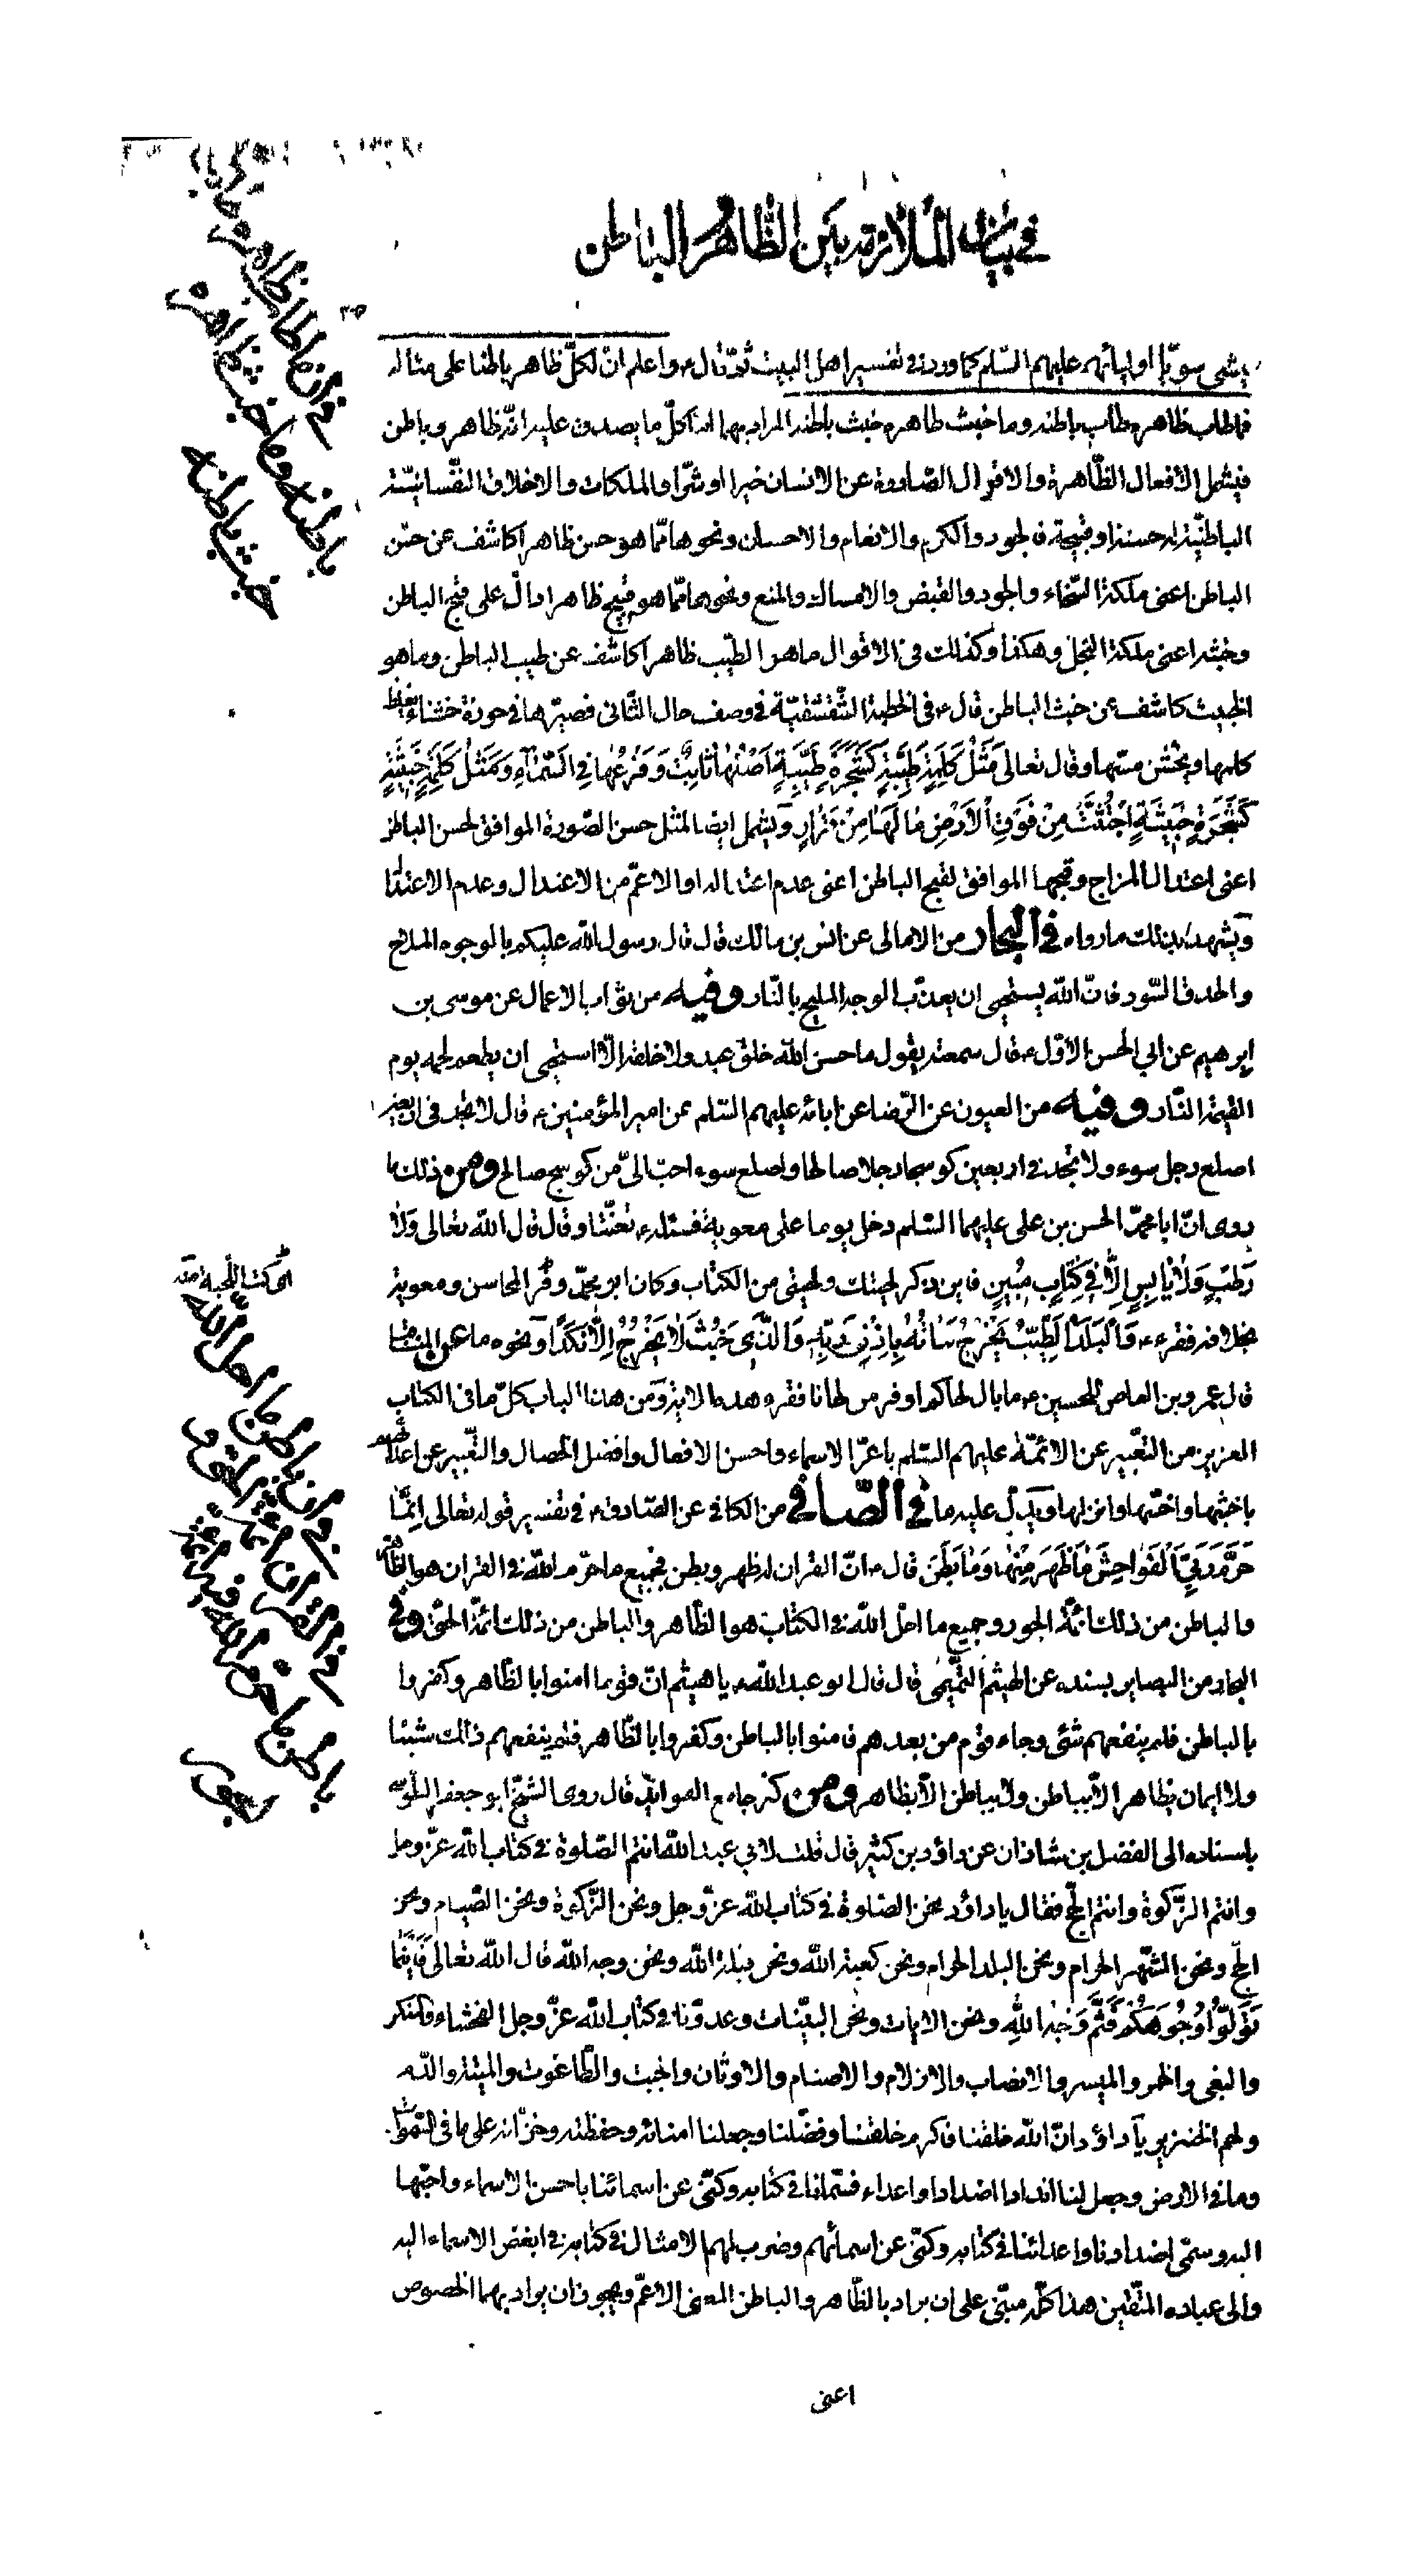 في بيان الملازمة بين الظاهر والباطن
٣٥
يمشى سويّا اوليائهم عليهم السّلم كما ورد فى تفسير اهل البيت ثمّ قال ع واعلم انّ لكلّ ظاهر باطنا على مثاله
فما طاب ظاهره طاب باطنه وما خبث ظاهره خبث باطنه المراد بهما انّ كلّ ما يصدق عليه انّه ظاهر وباطن
فيشمل الأفعال الظّاهرة والاقوال الصّادرة عن الانسان خيرا او شرّا والملكات والاخلاق النّفسانيّة
الباطنيّة له حسنة او قبيحة فالجود والكرم والانعام والاحسان ونحوها ممّا هو حسن ظاهرا كاشف عن حسن
الباطن اعنى ملكة السّخاء والجود والقبض والامساك والمنع ونحوها ممّا هو قبيح ظاهرا دالّ على قبح الباطن
وخبثه اعنى ملكة البخل وهكذا وكذلك فى الاقوال ما هو الطّيب ظاهرا كاشف عن طيب الباطن وما هو
الخبيث كاشف عن خبث الباطن قال ع فى الخطبة الشّقشقيّة فى وصف حال الثّانى فصيّرها فى حوزة خشناء يغلظ
كلمها ويخشن مسّها وقال تعالى مَثَلُ كَلِمَةٍ طَيِّبَةٍ كَشَجَرَةٍ طَيِّبَةٍ اَصْلُهٰا ثٰابِتٌ وَفَرْعُهٰا فِي السَّمٰآءِ وَمَثَلُ كَلِمَةٍ خَبيثَةٍ
كَشَجَرَةٍ خَبيثَةٍ اجْتُثَّتْ مِنْ فَوْقِ الْاَرْضِ مٰا لَهٰا مِنْ قَرٰارٍ ويشمل ايضا المثل حسن الصّورة الموافق لحسن الباطن
اعنى اعتدال المزاج وقبحها الموافق لقبح الباطن اعنى عدم اعتداله او الاعمّ من الاعتدال وعدم الاعتدال
ويشهد بذلك ما رواه في البحار من الامالى عن انس بن مالك قال قال رسول اللّه عليكم بالوجوه الملاح
والحدق السّود فانّ اللّه يستحيى ان يعذّب الوجه المليح بالنّار وفيه من ثواب الاعمال عن موسى بن
ابرهيم عن ابي الحسن الاوّل ع قال سمعته يقول ما حسن اللّه خلق عبد ولا خلقه الّا استحيى ان يطعم لحمه يوم
القيمة النّار وفيه من العيون عن الرّضا عن ابائه عليهم السّلم عن امير المؤمنين ع قال لا تجد فى اربعين
اصلع رجل سوء ولا تجد فى اربعين كوسجا رجلا صالحا واصلع سوء احبّ الىّ من كوسج صالح ومن ذلك ما
روى انّ ابا محمّد الحسن بن على عليهما السّلم دخل يوما على معوية فسئله تعنّتا وقال قال اللّه تعالى وَلاٰ
رَطْبٍ وَلاٰ يٰابِسٍ اِلّٰا فى كِتٰابٍ مُبينٍ فاين ذكر لحيتك ولحيتى من الكتاب وكان ابو محمّد وفر المحاسن ومعوية
بخلافه فقرء ع وَالْبَلَدُ الطَّيِّبُ يَخْرُجُ نَبٰاتُهُ بِاِذْنِ رَبِّهِ وَالَّذى خَبُثَ لاٰ يَخْرُجُ اِلّٰا نَكِدًا ونحوه ما عن المناقب
قال عمرو بن العاص للحسين ع ما بال لحاكم اوفر من لحانا فقرء هذه الاية ومن هذا الباب كلّ ما فى الكتاب
العزيز من التّعبير عن الائمّة عليهم السّلم باعزّ الاسماء واحسن الافعال وافضل الخصال والتّعبير عن اعدائهم
باخبثها واخسّها وانزلها ويدلّ عليه ما في الصّافي من الكافى عن الصّادق ع فى تفسير قوله تعالى اِنَّمٰا
حَرَّمَ رَبِّيَ الْفَوٰاحِشَ مٰا ظَهَرَ مِنْهٰا وَمٰا بَطَنَ قال ع انّ القران له ظهر وبطن فجميع ما حرّم اللّه فى القران هو الظّاهر
والباطن من ذلك ائمّة الجور وجميع ما احلّ اللّه فى الكتاب هو الظّاهر والباطن من ذلك ائمّة الحقّ وفى
البحار من البصاير بسنده عن الهيثم التّميمى قال قال ابو عبد اللّه ع يا هيثم انّ قوما امنوا بالظّاهر وكفروا
بالباطن فلم ينفعهم شئ وجاء قوم من بعدهم فامنوا بالباطن وكفروا بالظّاهر فلم ينفعهم ذلك شيئا
ولا ايمان بظاهر الّا بباطن ولا بباطن الّا بظاهر ومن كنز جامع الفوائد قال روى الشّيخ ابو جعفر الطّوسى
باسناده الى الفضل بن شاذان عن داؤد بن كثير قال قلت لابي عبد اللّه انتم الصّلوة فى كتاب اللّه عزّ وجل
وانتم الزّكوة وانتم الحجّ فقال يا داؤد نحن الصّلوة فى كتاب اللّه عزّ وجل ونحن الزّكوة ونحن الصّيام ونحن
الحجّ ونحن الشّهر الحرام ونحن البلد الحرام ونحن كعبة اللّه ونحن قبلة اللّه ونحن وجه اللّه قال اللّه تعالى فَاَيْنَمٰا
تُوَلّوُا وُجُوهَكُمْ فَثَمَّ وَجْهُ اللّٰهِ ونحن الايات ونحن البيّنات وعدوّنا فى كتاب اللّه عزّ وجل الفحشاء والمنكر
والبغى والخمر والميسر والانصاب والازلام والاصنام والاوثان والجبت والطّاغوت والميتة والدّم
ولحم الخنزير يا داؤد انّ اللّه خلقنا فاكرم خلقنا وفضّلنا وجعلنا امنائه وحفظته وخزّانه على ما فى السّموات
وما فى الارض وجعل لنا اندادا اضدادا واعداء فسمّانا فى كتابه وكنّى عن اسمائنا باحسن الاسماء واحبّها
اليه وسمّى اضدادنا واعدائنا فى كتابه وكنّى عن اسمائهم وضرب لهم الامثال فى كتابه فى ابغض الاسماء اليه
والى عباده المتّقين هذا كلّه مبنىّ على ان يراد بالظّاهر والباطن المعنى الاعمّ ويجوز ان يراد بهما الخصوص
اعنى
في ان ما طاب ظاهره طاب
باطنه وما خبث ظاهره
خبث باطنه
اى كث اللّحية منه
في ان باطن ما احل اللّه
في القران ائمّة الحق و
باطن ما حرم اللّه فيه ائمّة
الجور